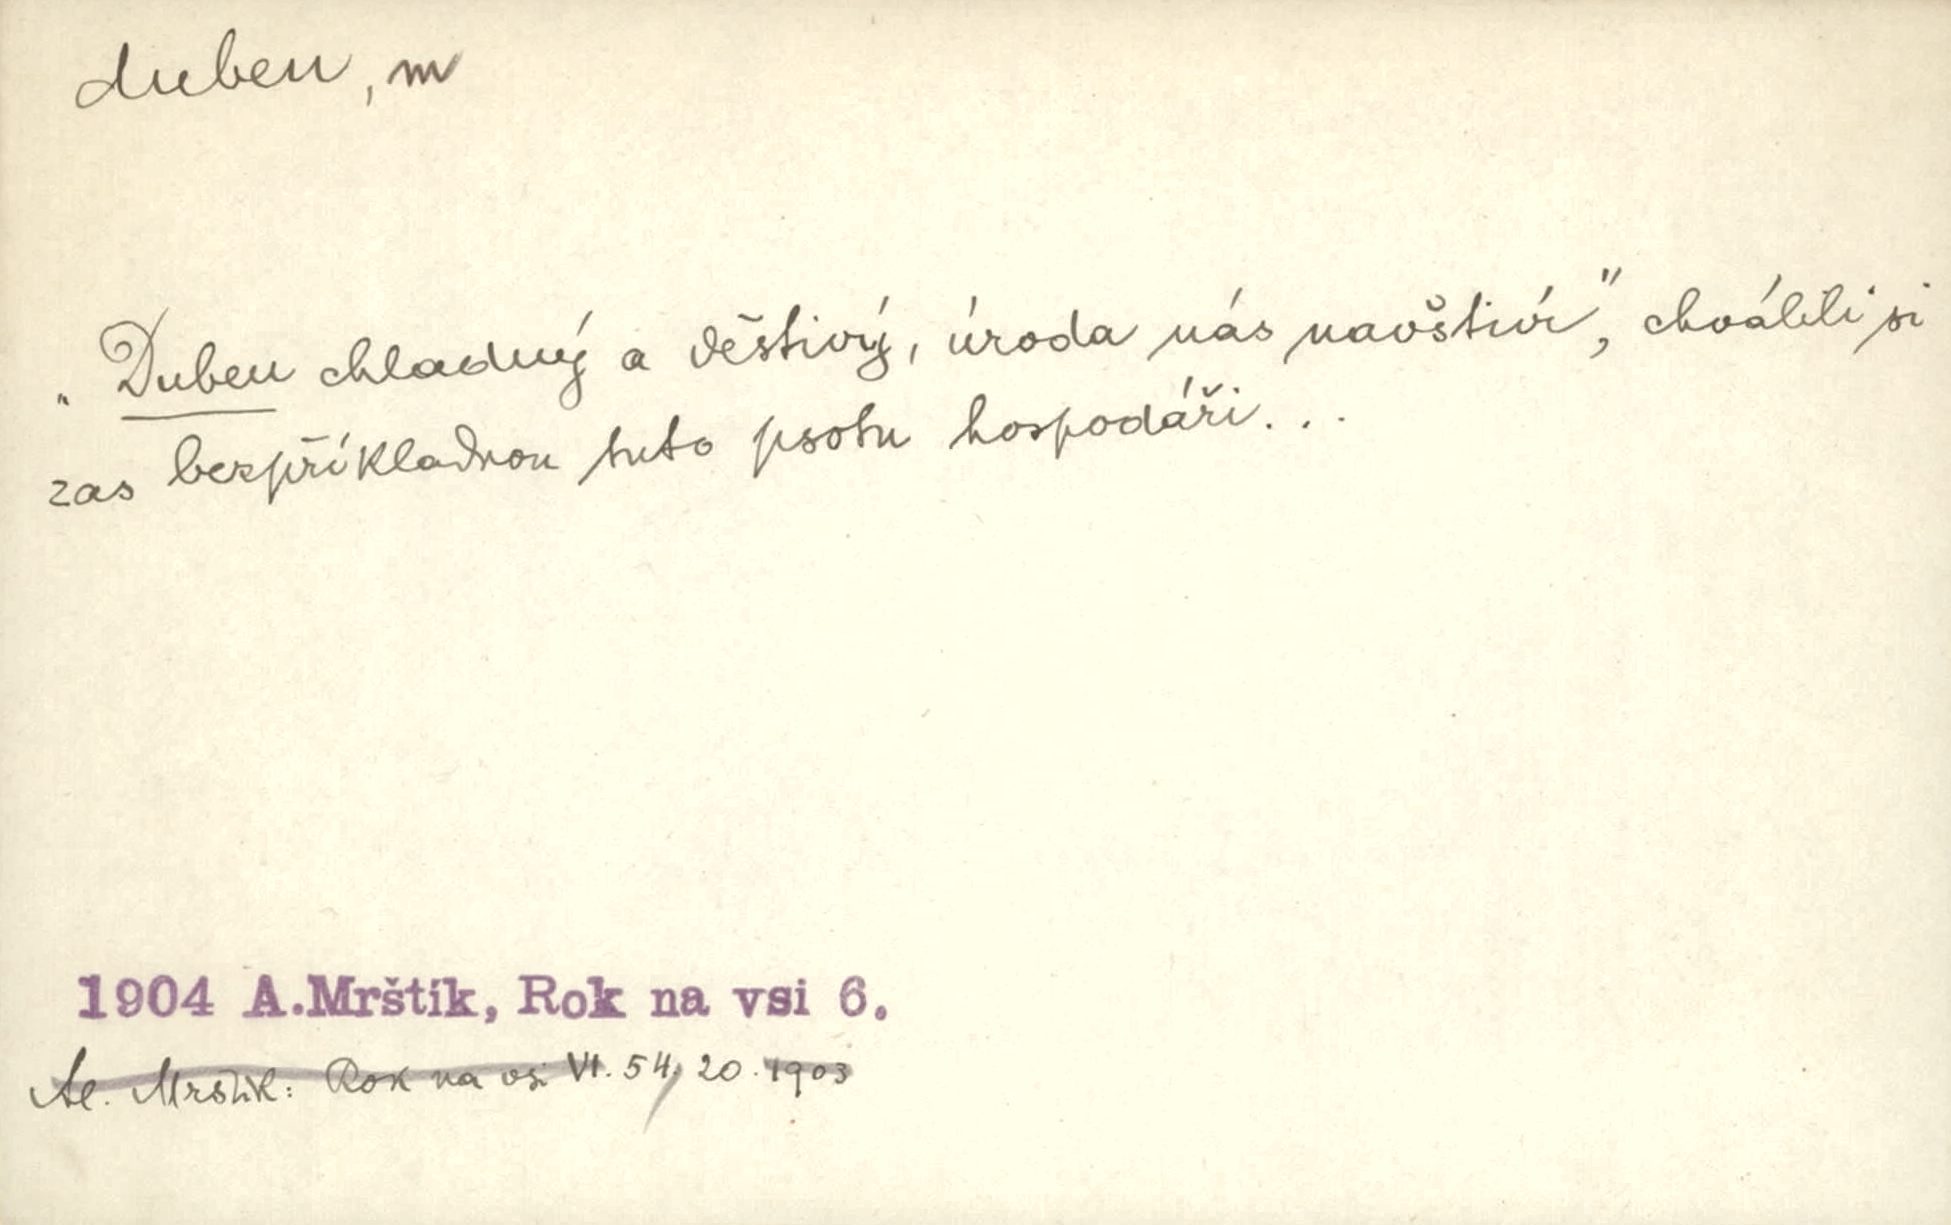 duben, m
„Duben chladný a deštivý, úroda nás navštíví", chválili si
zas bezpříkladnou tuto psotu hospodáři...
1904 A.Mrštík, Rok na vsi 6.
Al. Mrštík: Rok na vsi VI. 54, 20. 1903